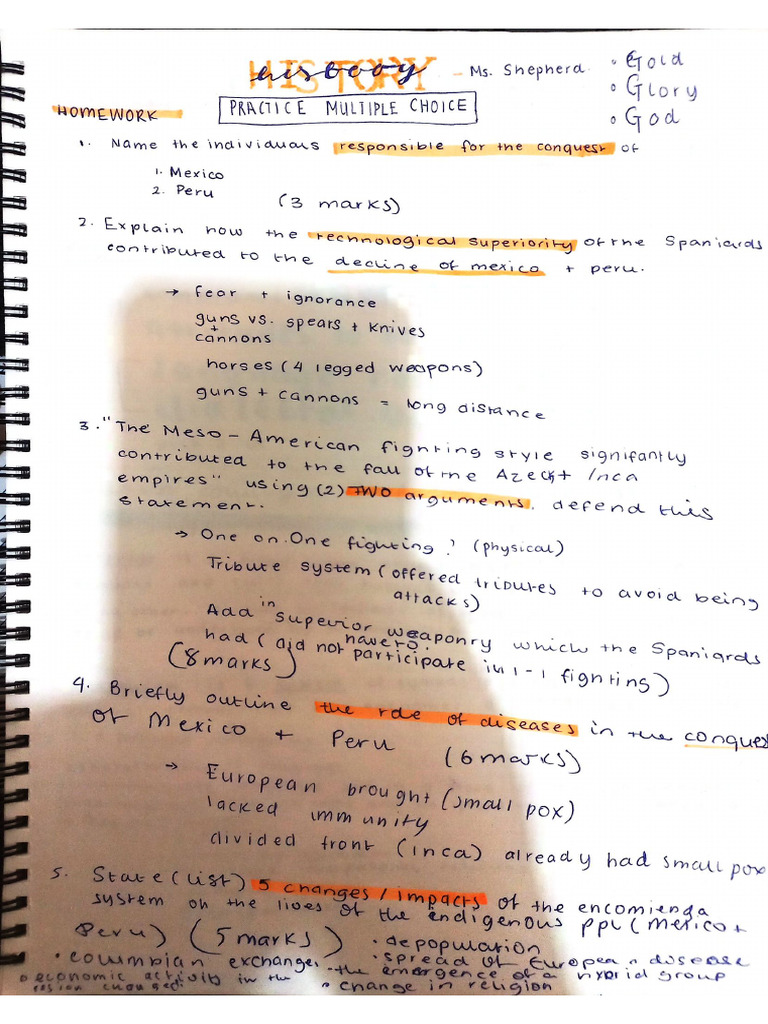 HISTORY
history - Ms. Shepherd.
• Gold
• Glory
• God
HOMEWORK
PRACTICE MULTIPLE CHOICE
1. Name the individuals responsible for the conquest of
1. Mexico
2. Peru
(3 marks)
2. Explain how the technological superiority of the Spaniards
contributed to the decline of mexico + peru.
→ fear + ignorance
guns vs. spears + knives
+
cannons
horses (4 legged weapons)
guns + cannons = long distance
3. "The Meso-American fighting style signifantly
contributed to the fall of the Azect + Inca
empires" using (2) two arguments, defend this
statement.
→ One on One fighting? (physical)
Tribute system (offered tributes to avoid being
attacks)
Add in superior weaponry which the Spaniards
had (did not have to
participate in 1-1 fighting)
(8 marks)
4. Briefly outline the role of diseases in the conques
of Mexico + Peru (6 marks)
→ European brought (small pox)
lacked immunity
divided front (inca) already had small pox
5. State (list) 5 changes / impacts of the encomienda
system on the lives of the endigenous ppl (mexico +
Peru) (5 marks)
• depopulation
• columbian exchange
• spread of European disease
• economic activity in the
changed
• the emergence of a hybrid group
• change in religion